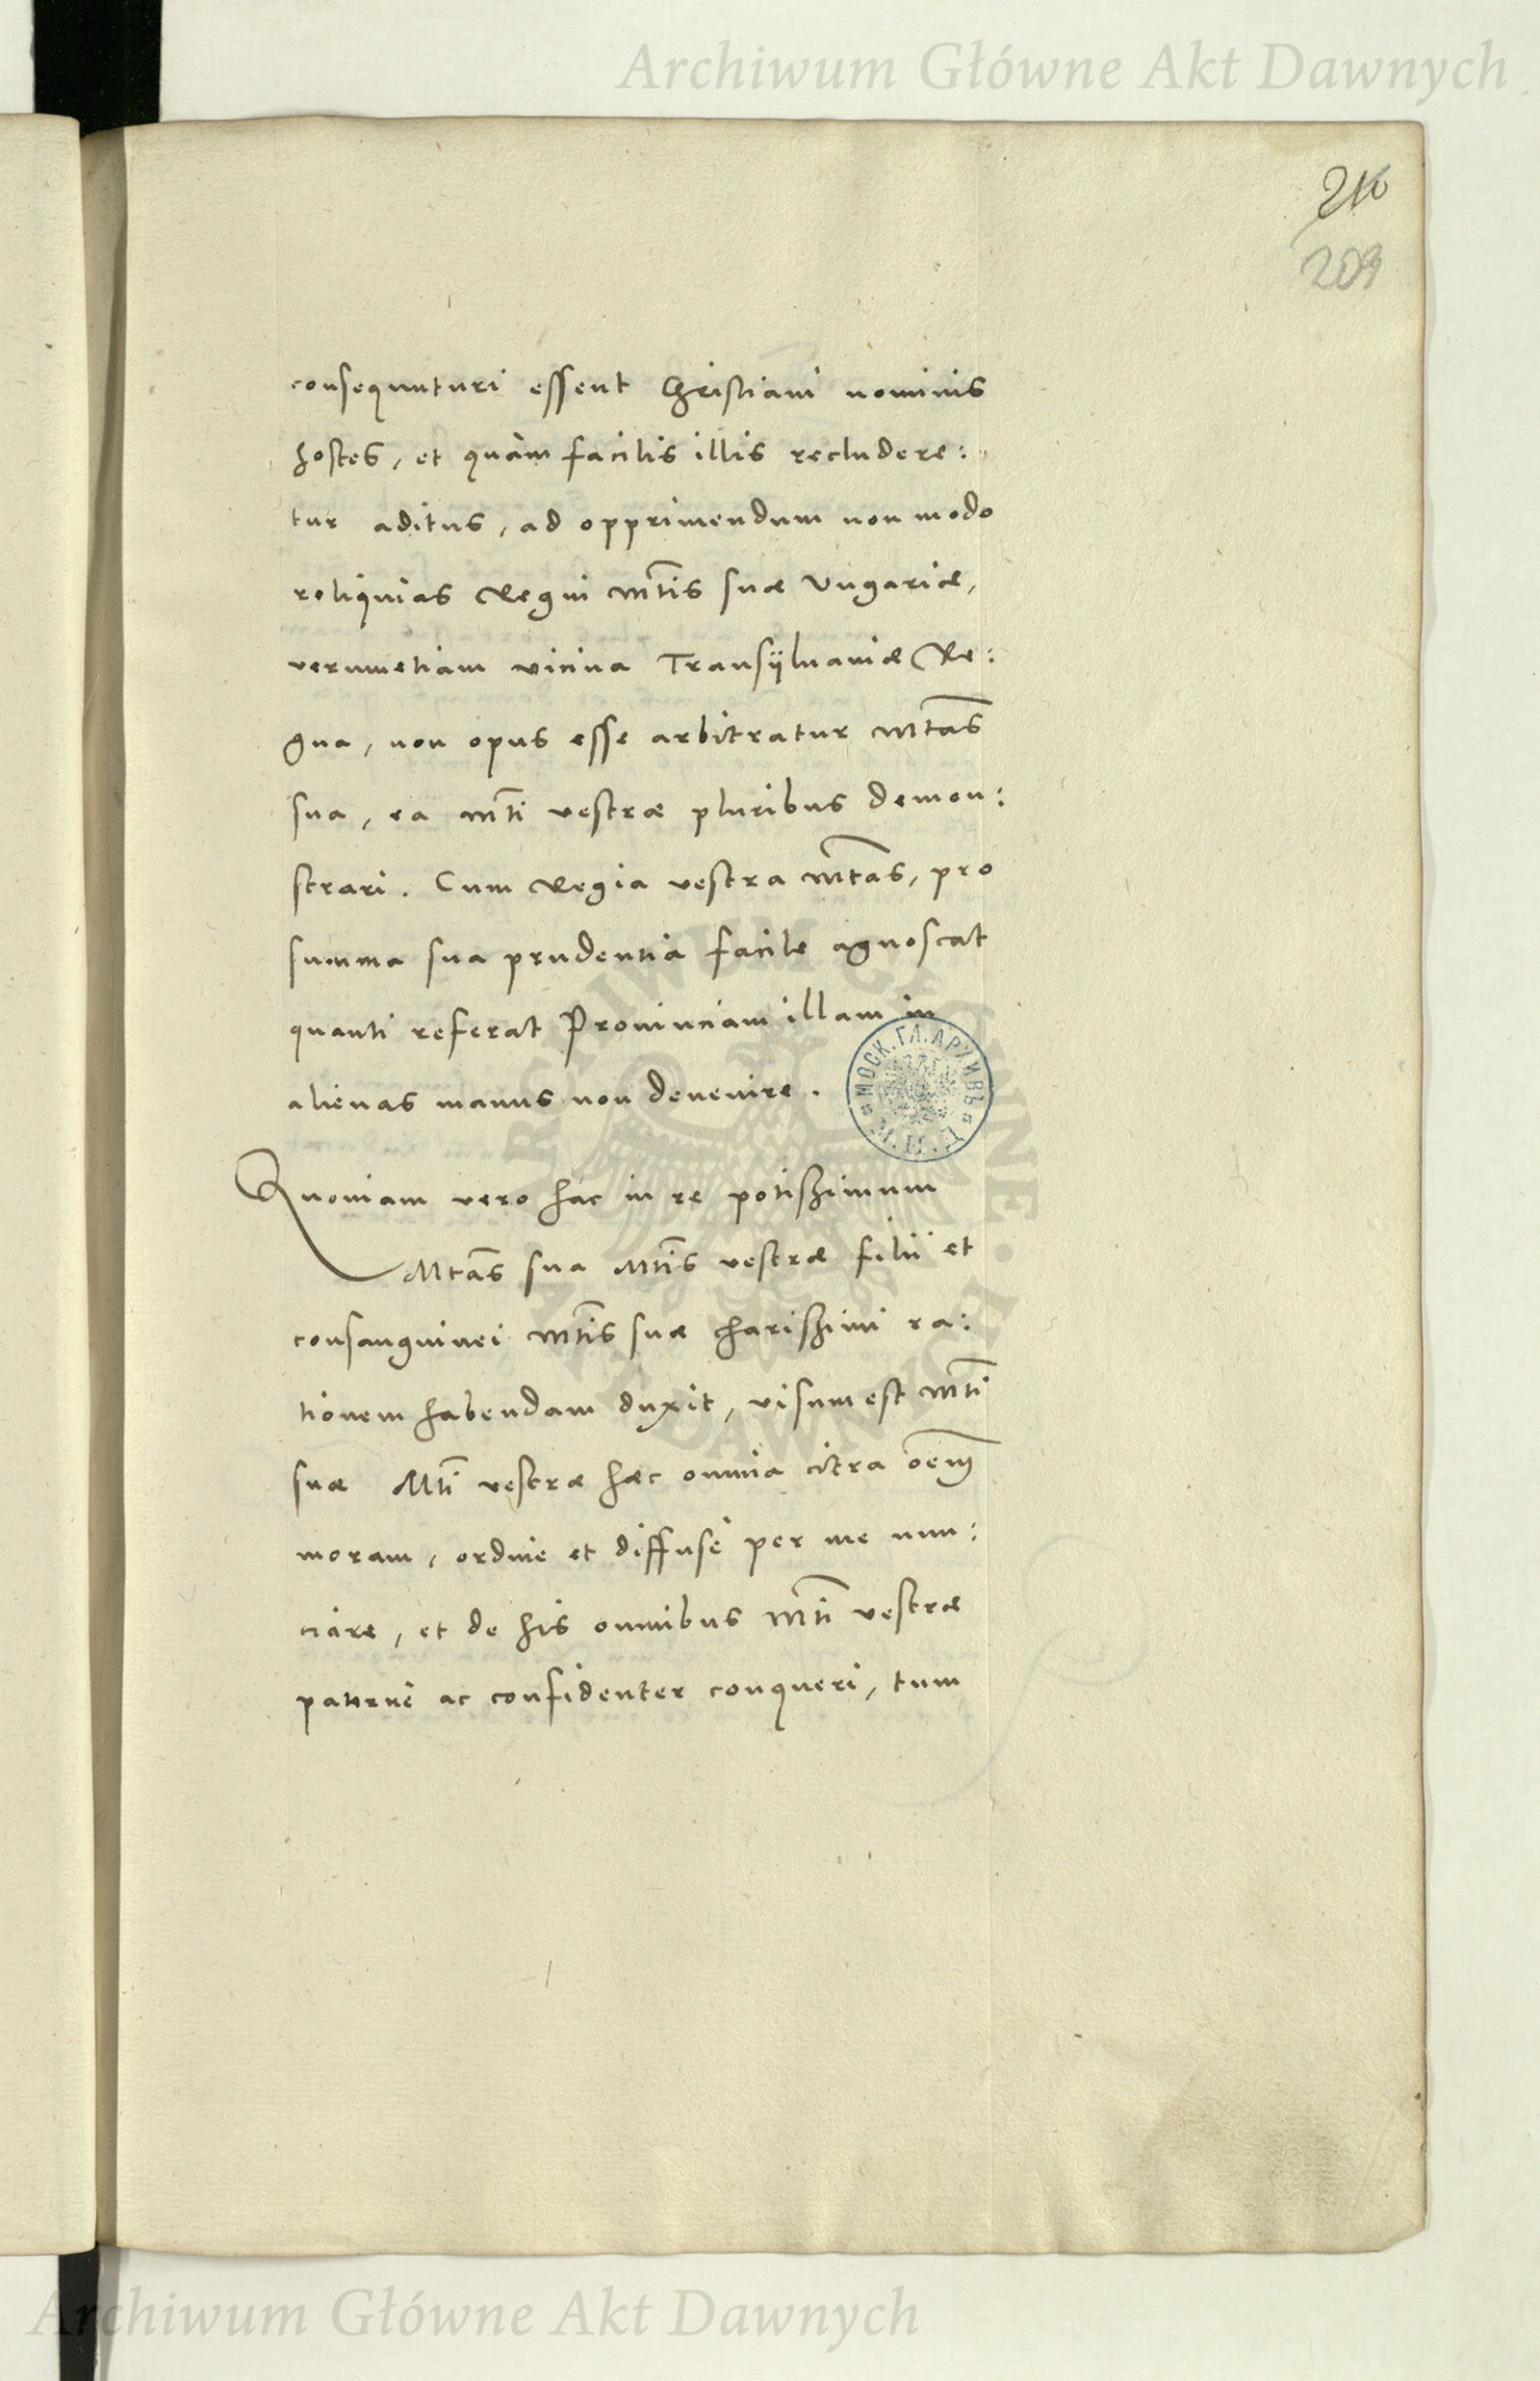 Archiwum Główne Akt Dawnych
209
consequuturi essent Christiani nominis
hostes, et quàm facilis illis recludere:
tur aditus, ad opprimendum non modo
reliquias Regni Mtis suæ Vngariæ,
verumetiam vicina Transijluaniæ Re:
gna, non opus esse arbitratur Mtas
sua, ea Mti vestræ pluribus demon:
strari. Cum Regia vestra Mtas, pro
summa sua prudentia facile agnoscat
quanti referat Prouinciam illam in
alienas manus non deuenire.
МОСК. ГЛ. АРХИВЪ
Quoniam vero hac in re potissimum
Mtas sua Mtis vestræ filii et
consanguinei Mtis suæ charissimi ra:
tionem habendam duxit, visum est Mti
suæ Mti vestræ hæc omnia citra oem
moram, ordine et diffusè per me nun:
ciare, et de his omnibus Mti vestræ
paternè ac confidenter conqueri, tum
ARCHIWUM GŁÓWNE AKT DAWNYCH
Archiwum Główne Akt Dawnych